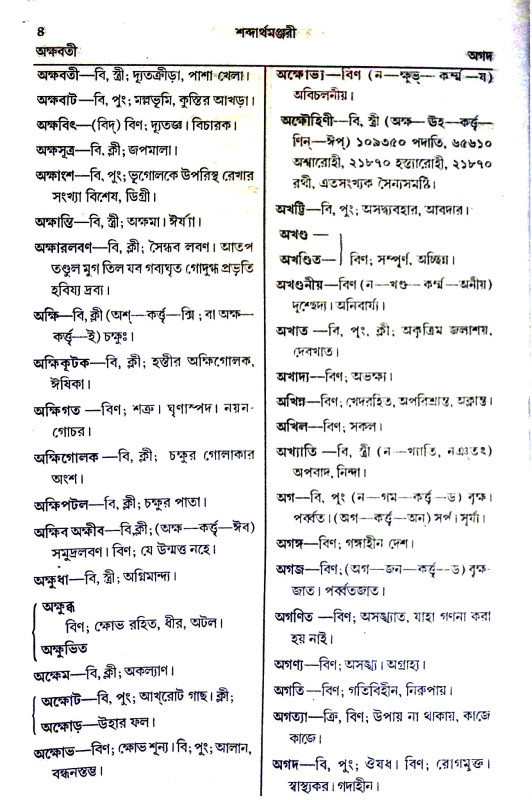 ৪
শব্দার্থমঞ্জরী
অক্ষবতী
অগদ
অক্ষবতী—বি, স্ত্রী; দ্যূতক্রীড়া, পাশা খেলা।
অক্ষবাট—বি, পুং; মল্লভূমি, কুস্তির আখড়া।
অক্ষবিৎ—(বিদ্) বিণ; দ্যূতজ্ঞ। বিচারক।
অক্ষসূত্র—বি, ক্লী; জপমালা।
অক্ষাংশ—বি, পুং; ভূগোলকে উপরিস্থ রেখার
সংখ্যা বিশেষ, ডিগ্রী।
অক্ষান্তি—বি, স্ত্রী; অক্ষমা। ঈর্ষ্যা।
অক্ষারলবণ—বি, ক্লী; সৈন্ধব লবণ। আতপ
তণ্ডুল মুগ তিল যব গব্যঘৃত গোদুগ্ধ প্রভৃতি
হবিষ্য দ্রব্য।
অক্ষি—বি, ক্লী (অশ্—কর্ত্তৃ—ক্সি ; বা অক্ষ—
কর্ত্তৃ—ই) চক্ষুঃ।
অক্ষিকূটক—বি, ক্লী; হস্তীর অক্ষিগোলক,
ঈষিকা।
অক্ষিগত —বিণ; শত্রু। ঘৃণাস্পদ। নয়ন-
গোচর।
অক্ষিগোলক —বি, ক্লী; চক্ষুর গোলাকার
অংশ।
অক্ষিপটল—বি, ক্লী; চক্ষুর পাতা।
অক্ষিব অক্ষীব—বি,ক্লী; (অক্ষ—কর্ত্তৃ—ঈব)
সমুদ্রলবণ। বিণ; যে উন্মত্ত নহে।
অক্ষুধা—বি, স্ত্রী; অগ্নিমান্দ্য।
অক্ষুব্ধ
বিণ; ক্ষোভ রহিত, ধীর, অটল।
অক্ষুভিত
অক্ষেম—বি, ক্লী; অকল্যাণ।
অক্ষোট—বি, পুং; আখ্‌রোট গাছ। ক্লী;
অক্ষোড়—উহার ফল।
অক্ষোভ—বিণ; ক্ষোভ শূন্য। বি; পুং; আলান,
বন্ধনস্তম্ভ।
অক্ষোভ্য—বিণ (ন—ক্ষুভ্—কর্ম্ম—য)
অবিচলনীয়।
অক্ষৌহিণী—বি, স্ত্রী (অক্ষ—ঊহ—কর্ত্তৃ—
ণিন্—ঈপ্) ১০৯৩৫০ পদাতি, ৬৫৬১০
অশ্বারোহী, ২১৮৭০ হস্ত্যারোহী, ২১৮৭০
রথী, এতসংখ্যক সৈন্যসমষ্টি।
অখট্টি—বি, পুং; অসদ্ব্যবহার, আবদার।
অখণ্ড —
অখণ্ডিত— বিণ; সম্পূর্ণ, অচ্ছিন্ন।
অখণ্ডনীয়—বিণ (ন—খণ্ড—কর্ম্ম—অনীয়)
দুশ্ছেদ্য। অনিবার্য্য।
অখাত —বি, পুং, ক্লী; অকৃত্রিম জলাশয়,
দেবখাত।
অখাদ্য—বিণ; অভক্ষ্য।
অখিন্ন—বিণ; খেদরহিত, অপরিশ্রান্ত, অক্লান্ত।
অখিল—বিণ; সকল।
অখ্যাতি —বি, স্ত্রী (ন—খ্যাতি, নঞতৎ)
অপবাদ, নিন্দা।
অগ—বি, পুং (ন—গম—কর্ত্তৃ—ড) বৃক্ষ।
পর্ব্বত। (অগ—কর্ত্তৃ—অন) সর্প। সূর্য্য।
অগঙ্গ—বিণ; গঙ্গাহীন দেশ।
অগজ—বিণ; (অগ—জন—কর্ত্তৃ—ড) বৃক্ষ-
জাত। পর্ব্বতজাত।
অগণিত —বিণ; অসঙ্খ্যাত, যাহা গণনা করা
হয় নাই।
অগণ্য—বিণ; অসঙ্খ্য। অগ্রাহ্য।
অগতি —বিণ; গতিবিহীন, নিরুপায়।
অগত্যা—ক্রি, বিণ; উপায় না থাকায়, কাজে
কাজে।
অগদ—বি, পুং; ঔষধ। বিণ; রোগমুক্ত।
স্বাস্থ্যকর। গদাহীন।